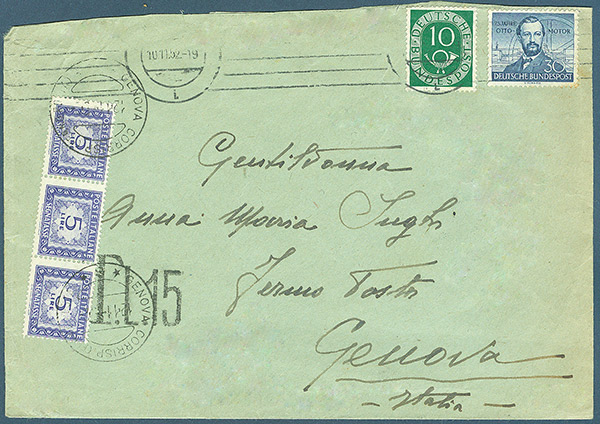 10.11.52-19
L
DEUTSCHE
10
BUNDESPOST
75 JAHRE
OTTO-
MOTOR
30
DEUTSCHE BUNDESPOST
GENOVA CORR
POSTE ITALIANE
5
LIRE
SEGNATASSE
POSTE ITALIANE
5
LIRE
SEGNATASSE
POSTE ITALIANE
5
LIRE
SEGNATASSE
GENOVA CORRISP
15
Gentildonna
Anna Maria
Fermo
Genova
Italia